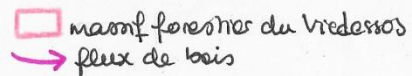 massif forestier du Viedessos
flux de bois